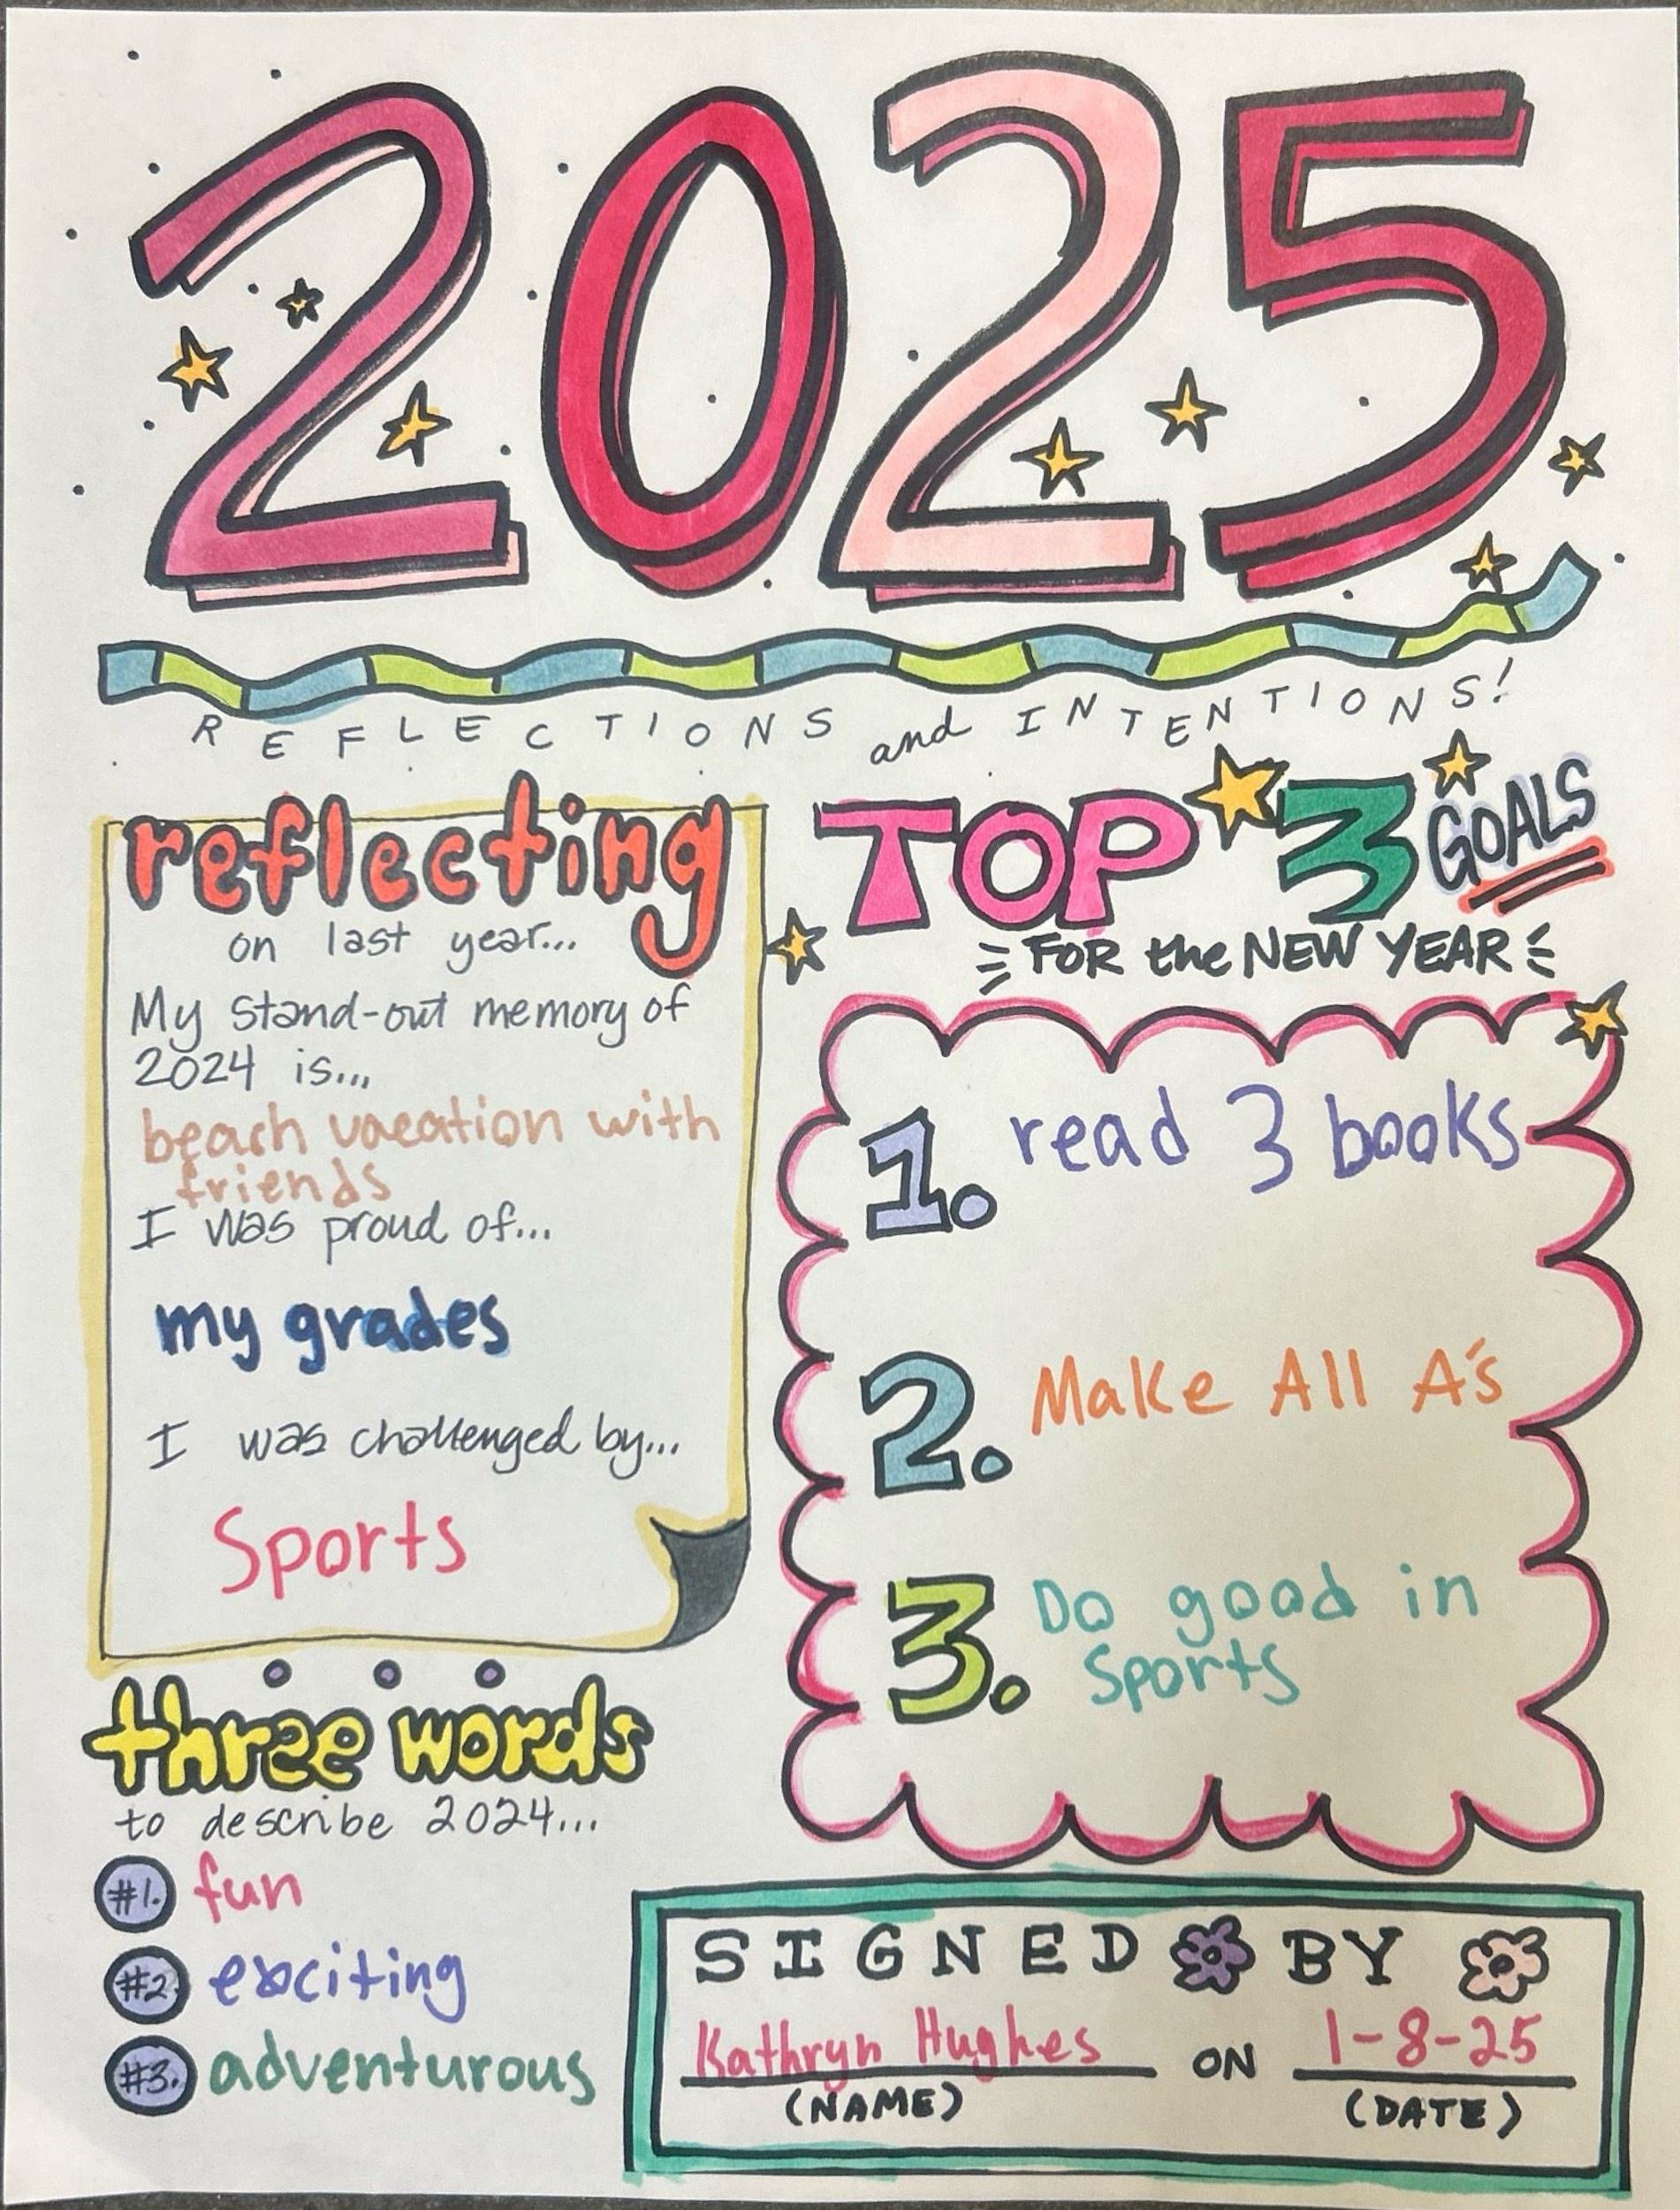 2025
REFLECTIONS and INTENTIONS!
reflecting
on last year...
My stand-out memory of
2024 is...
beach vacation with
friends
I was proud of...
my grades
I was challenged by...
Sports
three words
to describe 2024...
#1. fun
#2. exciting
#3. adventurous
TOP 3 GOALS
FOR the NEW YEAR
1. read 3 books
2. Make All A's
3. Do good in
Sports
SIGNED BY
Kathryn Hughes ON 1-8-25
(NAME) (DATE)